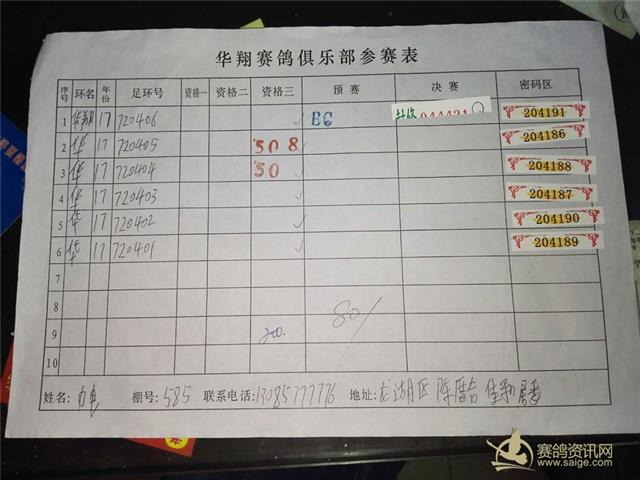 华翔赛鸽俱乐部参赛表
序号 环名 年份 足环号 资格一 资格二 资格三 预赛 决赛 密码区
1 华翔 17 720406 ✓ 204191
2 华 17 720405 508 204186
3 华 17 720404 50 204188
4 华 17 720403 ✓ 204187
5 华 17 720402 ✓ 204190
6 华 17 720401 ✓ 204189
7
8 80/
9 200.
10
姓名: 棚号: 585 联系电话: 13085777776 地址: 龙湖区
赛鸽资讯网
www.saige.com